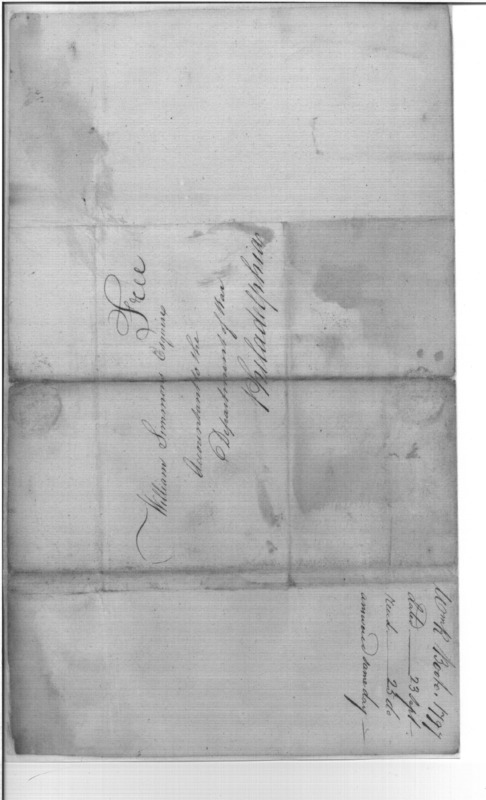 Free
William Simmons Esquire
Accountant to the
Department of War
Philadelphia
1797
dated 23 Sept
Recd 25 do
answered same day